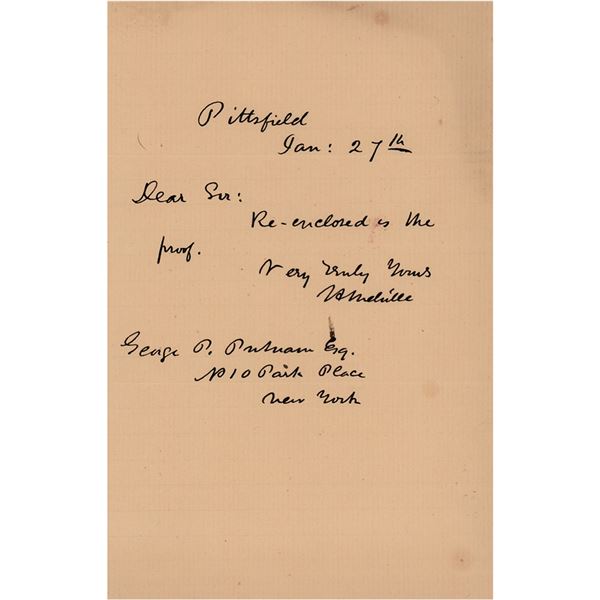 Pittsfield
Jan: 27th
Dear Sir:
Re-enclosed is the
proof.
Very Truly Yours
H Melville
George P. Putnam Esq.
No 10 Park Place
New York